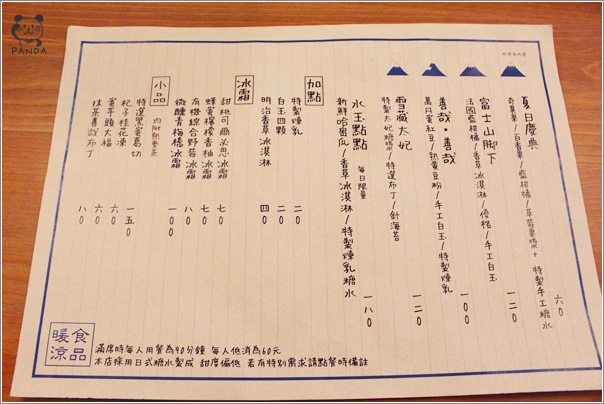 夏日慶典
奇異果/百香果/藍柑橘/草莓果漿+特製手工糖水
六0
富士山腳下
法國藍柑橘/香草冰淇淋/優格/手工白玉
一二0
善哉・善哉
萬丹蜜紅豆/熟黃豆粉/手工白玉/特製煉乳
一00
雪藏太妃
特製太妃糖漿/特選布丁/針海苔
一二0
水玉點點 每日限量
新鮮哈蜜瓜/香草冰淇淋/特製煉乳糖水
一八0
加點
特製煉乳
二0
白玉四顆
二0
明治香草冰淇淋
四0
冰霜
甜桃可爾必思冰霜
七0
蜂蜜檸檬香柚冰霜
七0
有機綜合野莓冰霜
八0
微醺青梅橋冰霜
一00
小品
內附熱麥茶
特選黑蜜葛切
一五0
杞子桂花凍
六0
蜜芋頭大福
六0
抹茶善哉布丁
八0
暖食
涼品
滿席時每人用餐為90分鐘 每人低消為60元
本店採用日式糖水製成 甜度偏低 若有特別需求請點餐時備註
PANDA